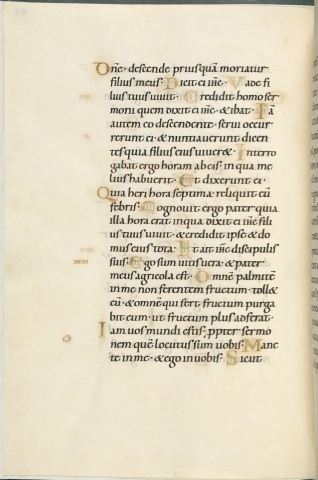 Dñe· descende priusquã moriatur
filius meus· Dicit ei iħe· Vade fi
lius tuus uiuit· Credidit homo ser
moni quem dixit ei iħe· & ibat· Iã
autem eo descendente· serui occur
rerunt ei· & nuntiauerunt dicen
tes quia filius eius uiuer&· Interro
gabat ergo horam ab eis· in qua me
lius habuerit· Et dixerunt ei·
Quia heri hora septima· reliquit eũ
febris· Cognouit ergo pater quia
illa hora erat in qua dixit ei iħe· fili
us tuus uiuit· & credidit ipse & do
mus eius tota· Et ait iħe discipulis
suis· Ego sum uitis uera· & pater
meus agricola est· Omnẽ palmitẽ
in me non ferentem fructum· toll&
eũ· & omnẽ qui fert fructum purga
bit eum· ut fructum plus adferat·
Iam uos mundi estis· ppter sermo
nem quẽ locutus sum uobis· Mane
te in me· & ego in uobis· Sicut